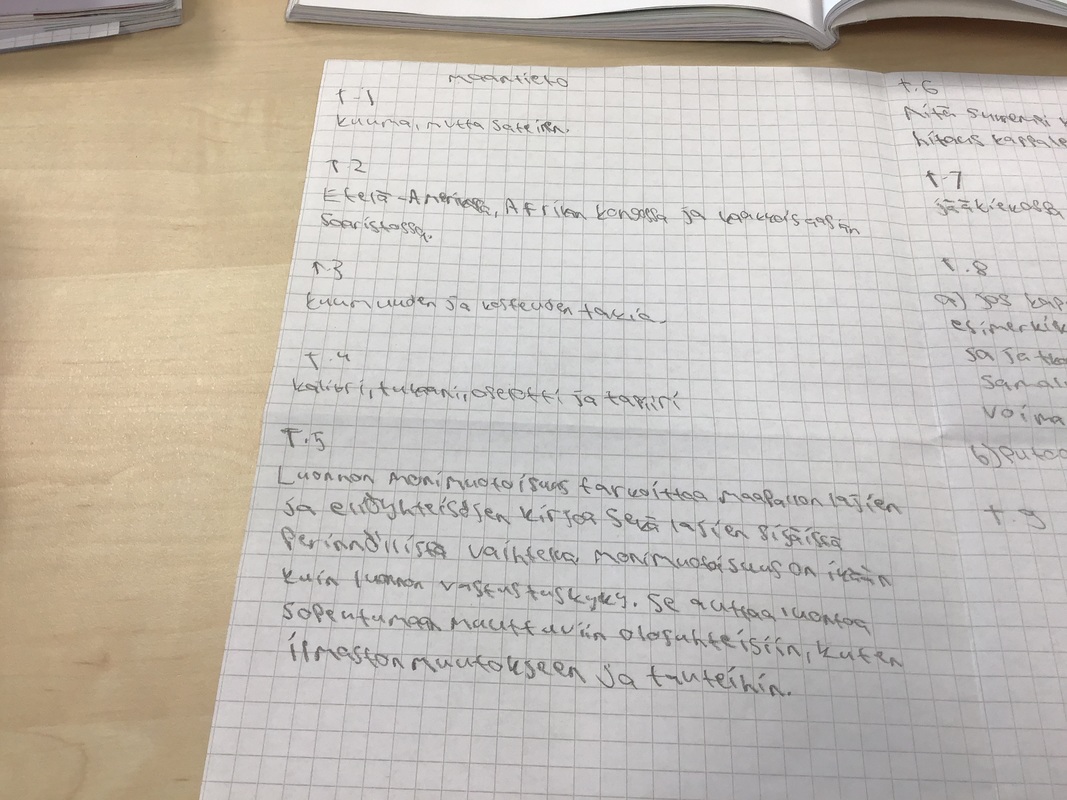 maantieto
t.1
kuuma, mutta sateinen.
T.2
Etelä-Amerikassa, Afrikan kongossa ja kaakkois aasian
Saaristossa.
T.3
kuumuuden ja kosteuden takia.
T.4
kolibri, tukaani, oselotti ja tapiiri
T.5
Luonnon monimuotoisuus tarkoittaa maapallon lajien
ja eliöyhteisöjen kirjoa sekä lajien sisäistä
Perinnöllistä vaihtelua, monimuotoisuus on ikään
kuin luonnon vastustuskyky. se auttaa luontoa
sopeutumaan muuttuviin olosuhteisiin, kuten
ilmastonmuutokseen ja tauteihin.
t.6
Mitä suurempi
hitaus kappale
t.7
jääkiekossa
t.8
a) jos kap
esimerkik
sa ja tko
samal
voima
b) putoa
t.9